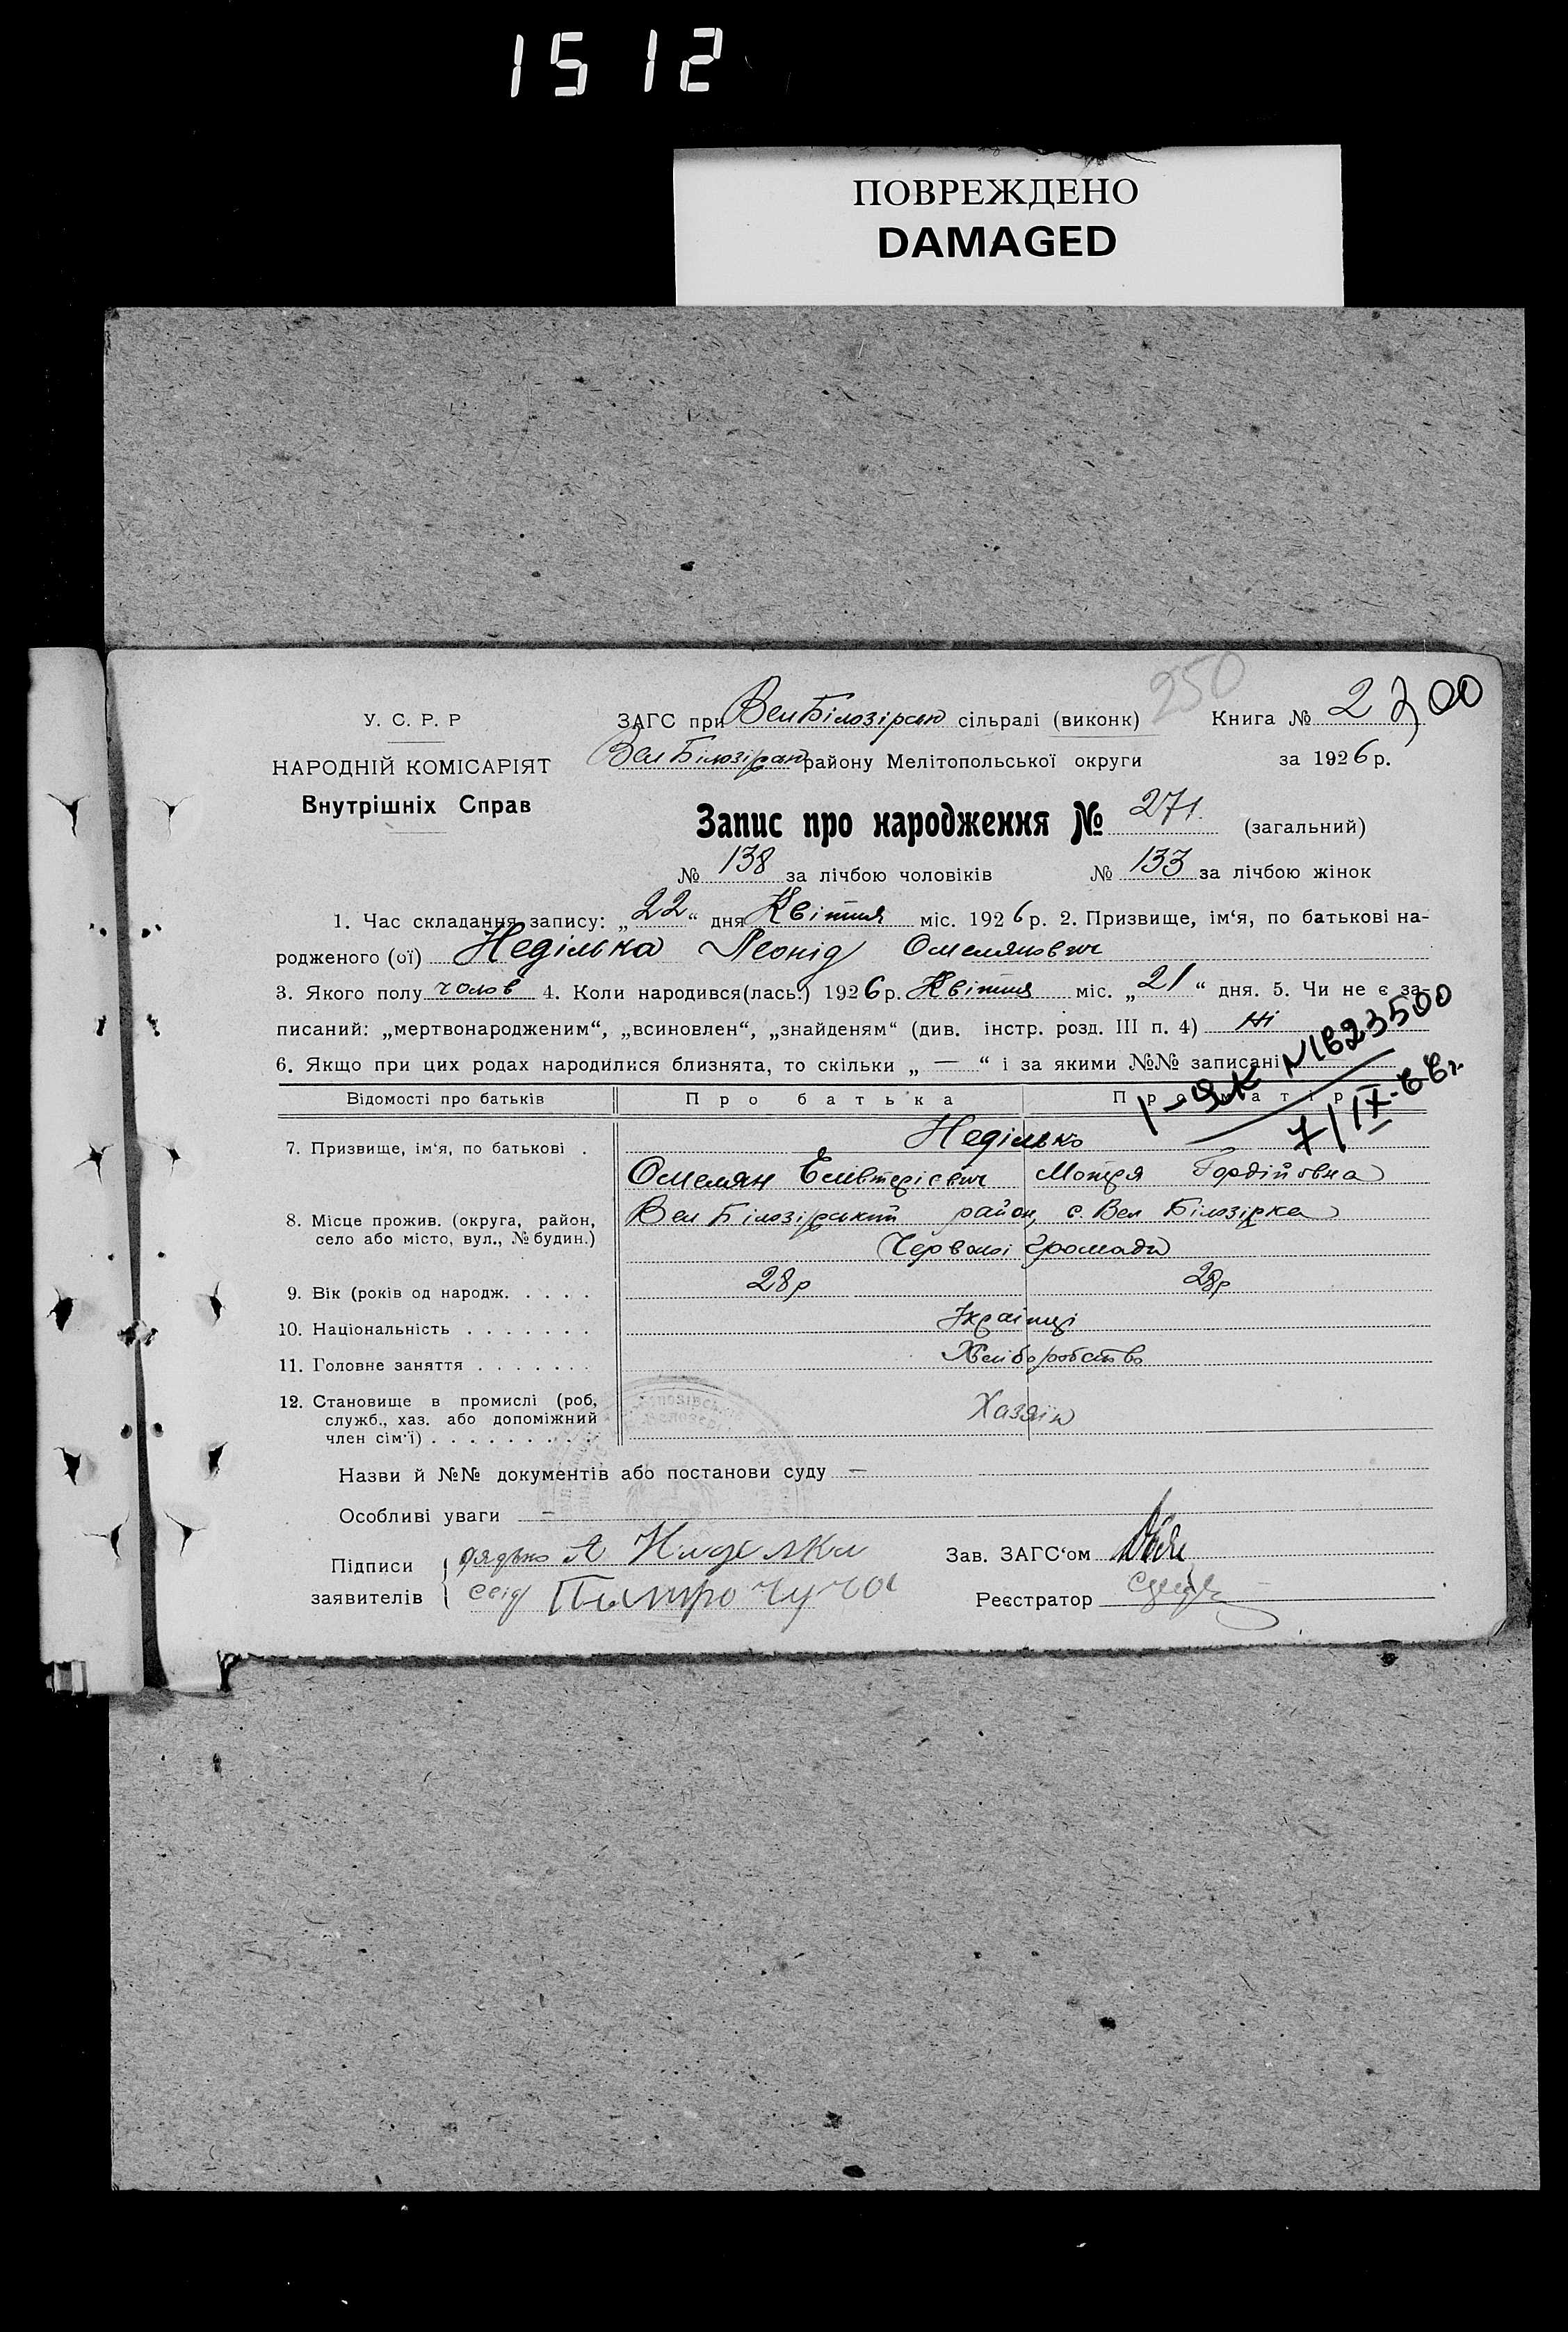 1512
ПОВРЕЖДЕНО
DAMAGED
250
У. С. Р. Р
НАРОДНІЙ КОМІСАРІЯТ
Внутрішніх Справ
ЗАГС при Вел Білозірськ сільраді (виконк) Книга № 2
Вел Білозірськ району Мелітопольської округи за 1926 р.
Запис про народження № 271. (загальний)
№ 138 за лічбою чоловіків № 133 за лічбою жінок
1. Час складання запису: „22“ дня Квітня міс. 1926 р. 2. Призвище, ім‘я, по батькові на-
родженого (ої) Неділька Леонід Омелянович
3. Якого полу чолов 4. Коли народився(лась.) 1926 р. Квітня міс. „21“ дня. 5. Чи не є за-
писаний: „мертвонародженим“, „всиновлен“, „знайденям“ (див. інстр. розд. III п. 4) Ні
6. Якщо при цих родах народилися близнята, то скільки „ — “ і за якими №№ записані
І-ЯК №1623500
7/IX-66г.
Відомості про батьків Про батька Про матір
7. Призвище, ім‘я, по батькові . Неділько
Омелян Елевтерієвич Мотря Гордійовна
8. Місце прожив. (округа, район, село або місто, вул., № будин.) Вел Білозірський район, с. Вел Білозірка
Червоної громади
9. Вік (років од народж. . . . . 28р 28р
10. Національність . . . . . . . Українці
11. Головне заняття . . . . . . . Хліборобство
12. Становище в промислі (роб, служб., хаз. або допоміжний член сім‘ї) . . . . . . . . . Хазяїн
Назви й №№ документів або постанови суду —
Особливі уваги —
Підписи заявителів
дядько А Ниделки
свід Питро Чуча
Зав. ЗАГС‘ом
Реєстратор